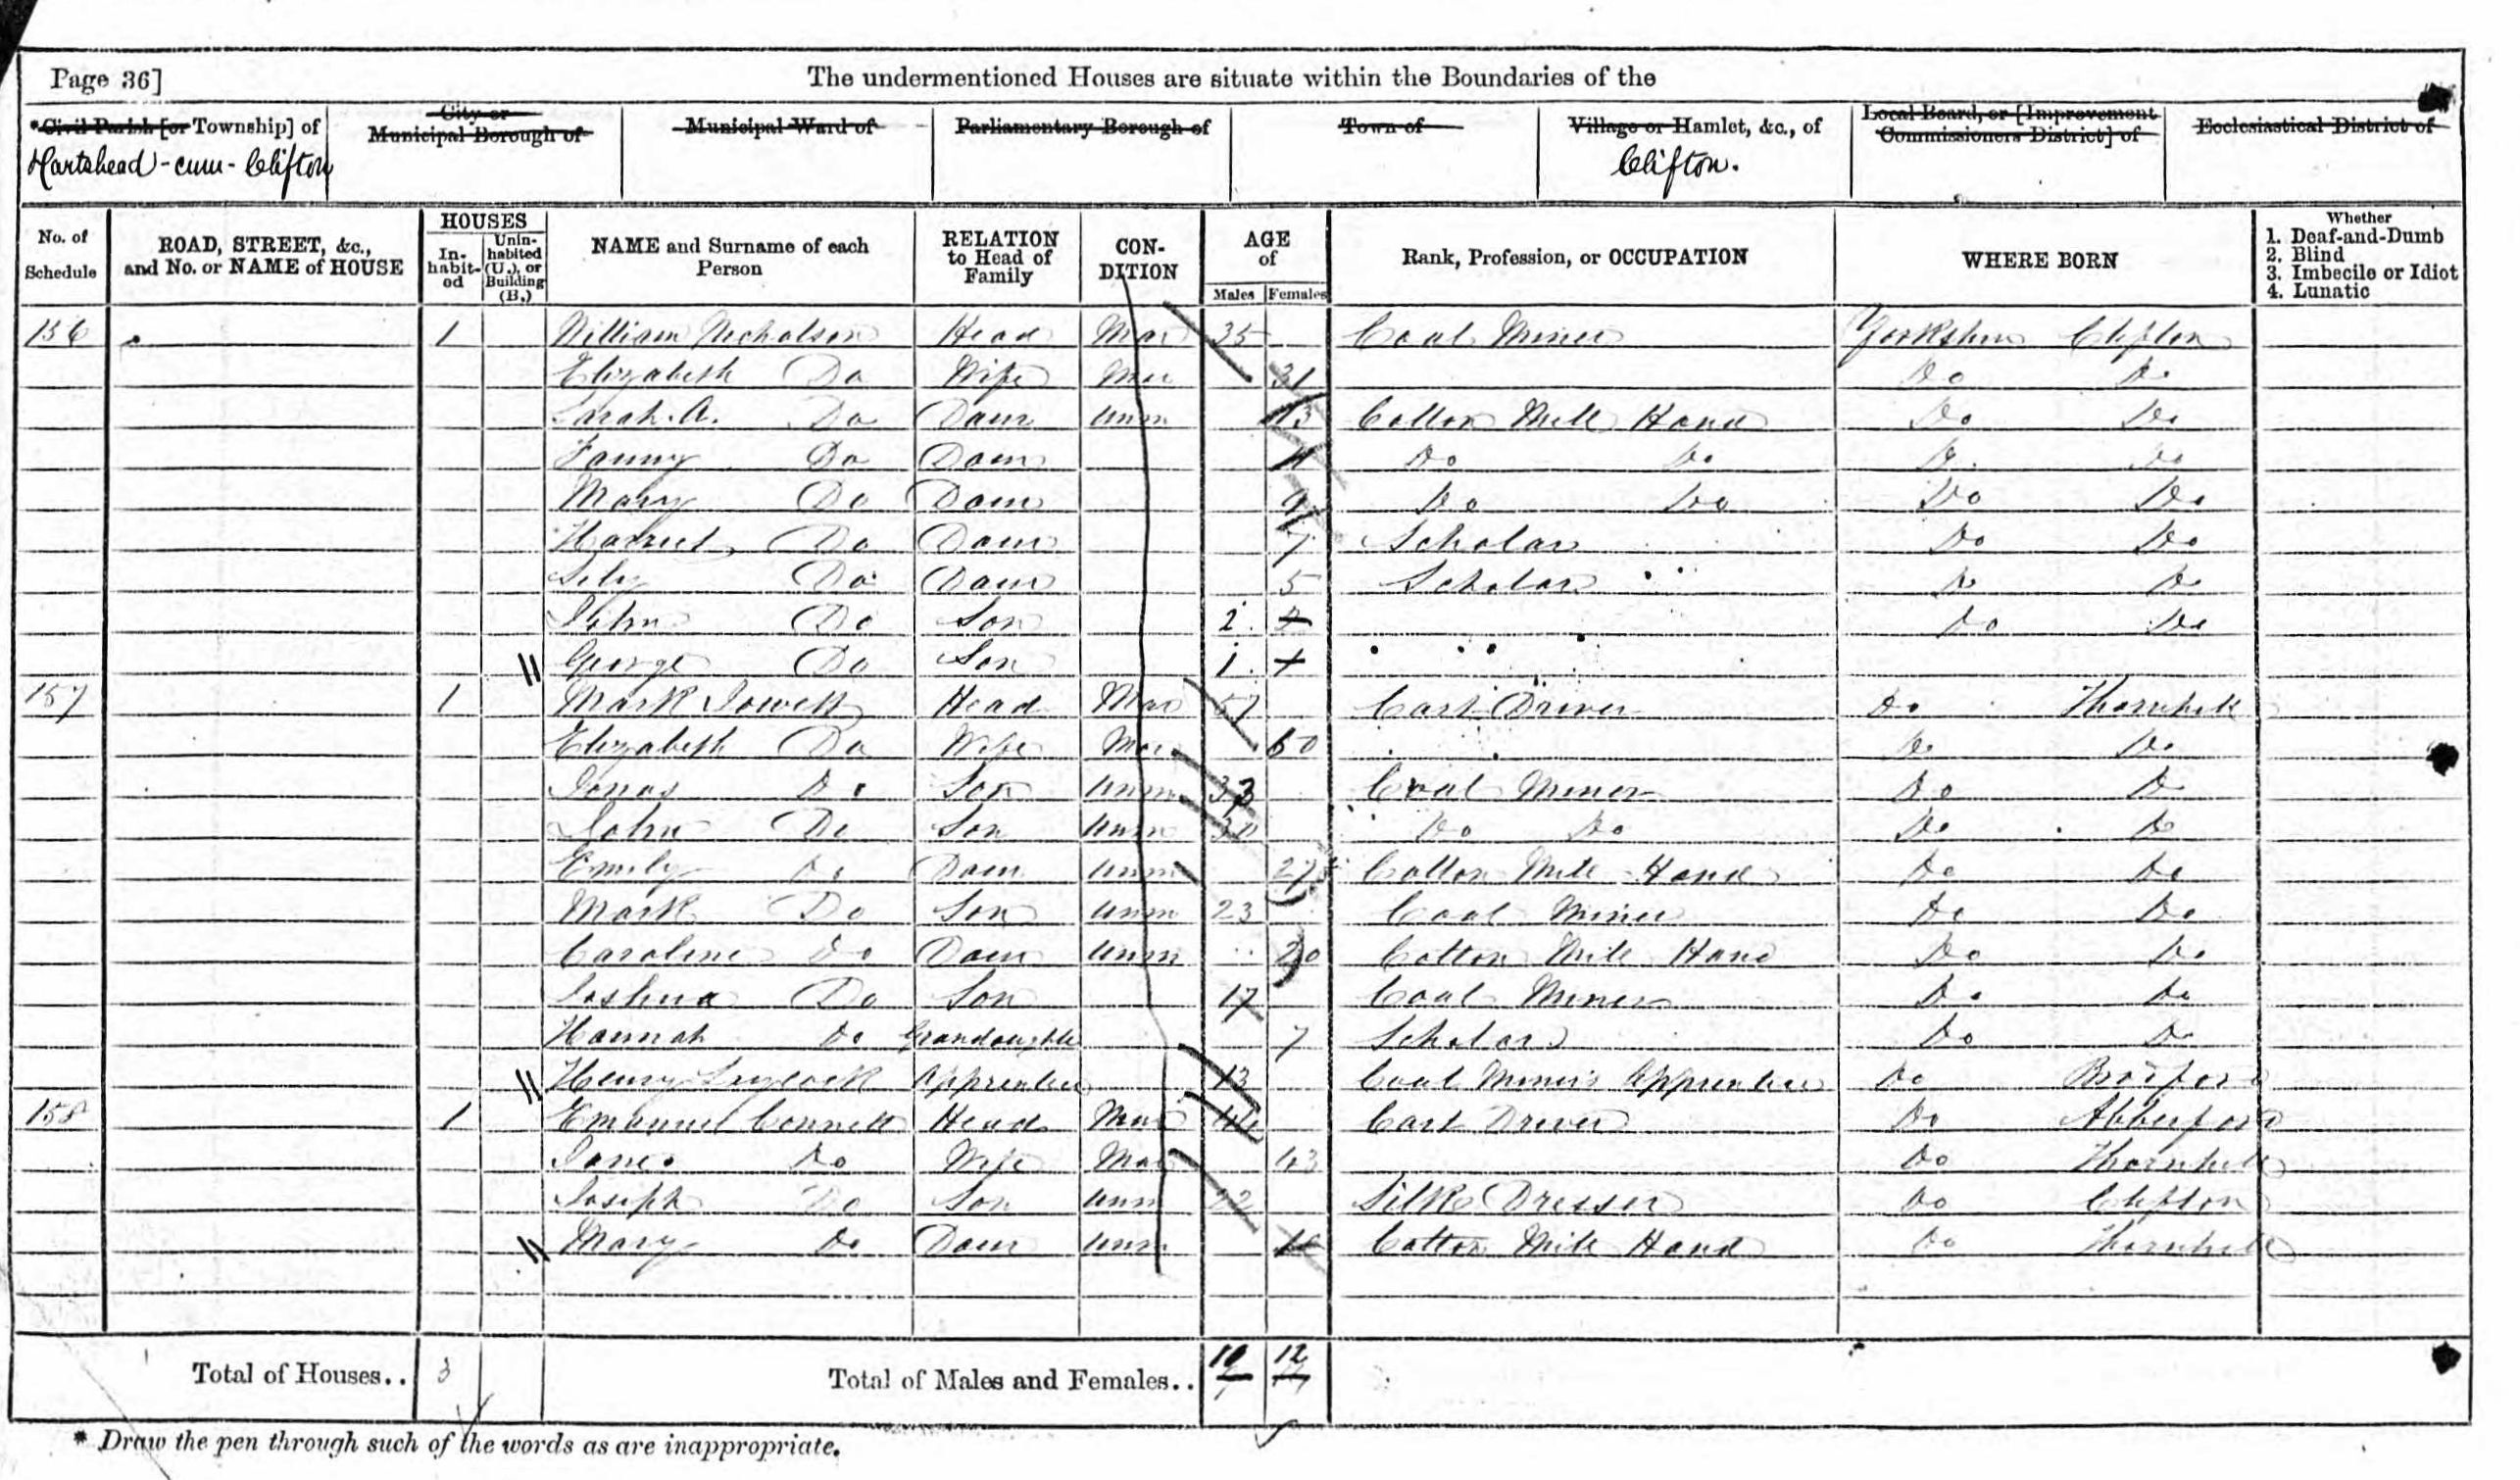 Page 36]
The undermentioned Houses are situate within the Boundaries of the
*Civil Parish [or Township] of
City or Municipal Borough of
Municipal Ward of
Parliamentary Borough of
Town of
Village or Hamlet, &c., of
Local Board, or [Improvement Commissioners District] of
Ecclesiastical District of
Hartshead-cum-Clifton
Clifton.
No. of Schedule
ROAD, STREET, &c., and No. or NAME of HOUSE
HOUSES
In-habit-ed
Unin-habited (U.), or Building (B.)
NAME and Surname of each Person
RELATION to Head of Family
CON-DITION
AGE of
Males
Females
Rank, Profession, or OCCUPATION
WHERE BORN
Whether
1. Deaf-and-Dumb
2. Blind
3. Imbecile or Idiot
4. Lunatic
156 1 William Nicholson Head Mar 35 Coal Miner Yorkshire Clifton
Elizabeth Do Wife Mar 31 Do Do
Sarah. A. Do Daur Unm 13 Cotton Mill Hand Do Do
Fanny Do Daur 11 Do Do Do Do
Mary Do Daur 9 Do Do Do Do
Harriet Do Daur 7 Scholar Do Do
Do Daur 5 Scholar Do Do
John Do Son 2 Do Do
George Do Son 1
157 1 Mark Jowett Head Mar 57 Cart Driver Do Thornhill
Elizabeth Do Wife Mar Do Do
Jonas Do Son Unm 33 Coal Miner Do Do
John Do Son Unm 30 Do Do Do Do
Emily Do Daur Unm 27 Cotton Mill Hand Do Do
Mark Do Son Unm 23 Coal Miner Do Do
Caroline Do Daur Unm 20 Cotton Mill Hand Do Do
Joshua Do Son 17 Coal Miner Do Do
Hannah Do Grandaughter 7 Scholar Do Do
Henry Laycock Apprentice 13 Coal Miner's Apprentice Do
158 1 Emanuel Head Mar Cart Driver Do Abberford
Jane Do Wife Mar 43 Do Thornhill
Joseph Do Son Unm 22 Silk Dresser Do Clifton
Mary Do Daur Unm Cotton Mill Hand Do Thornhill
Total of Houses.. 3
Total of Males and Females.. 10 12
* Draw the pen through such of the words as are inappropriate.